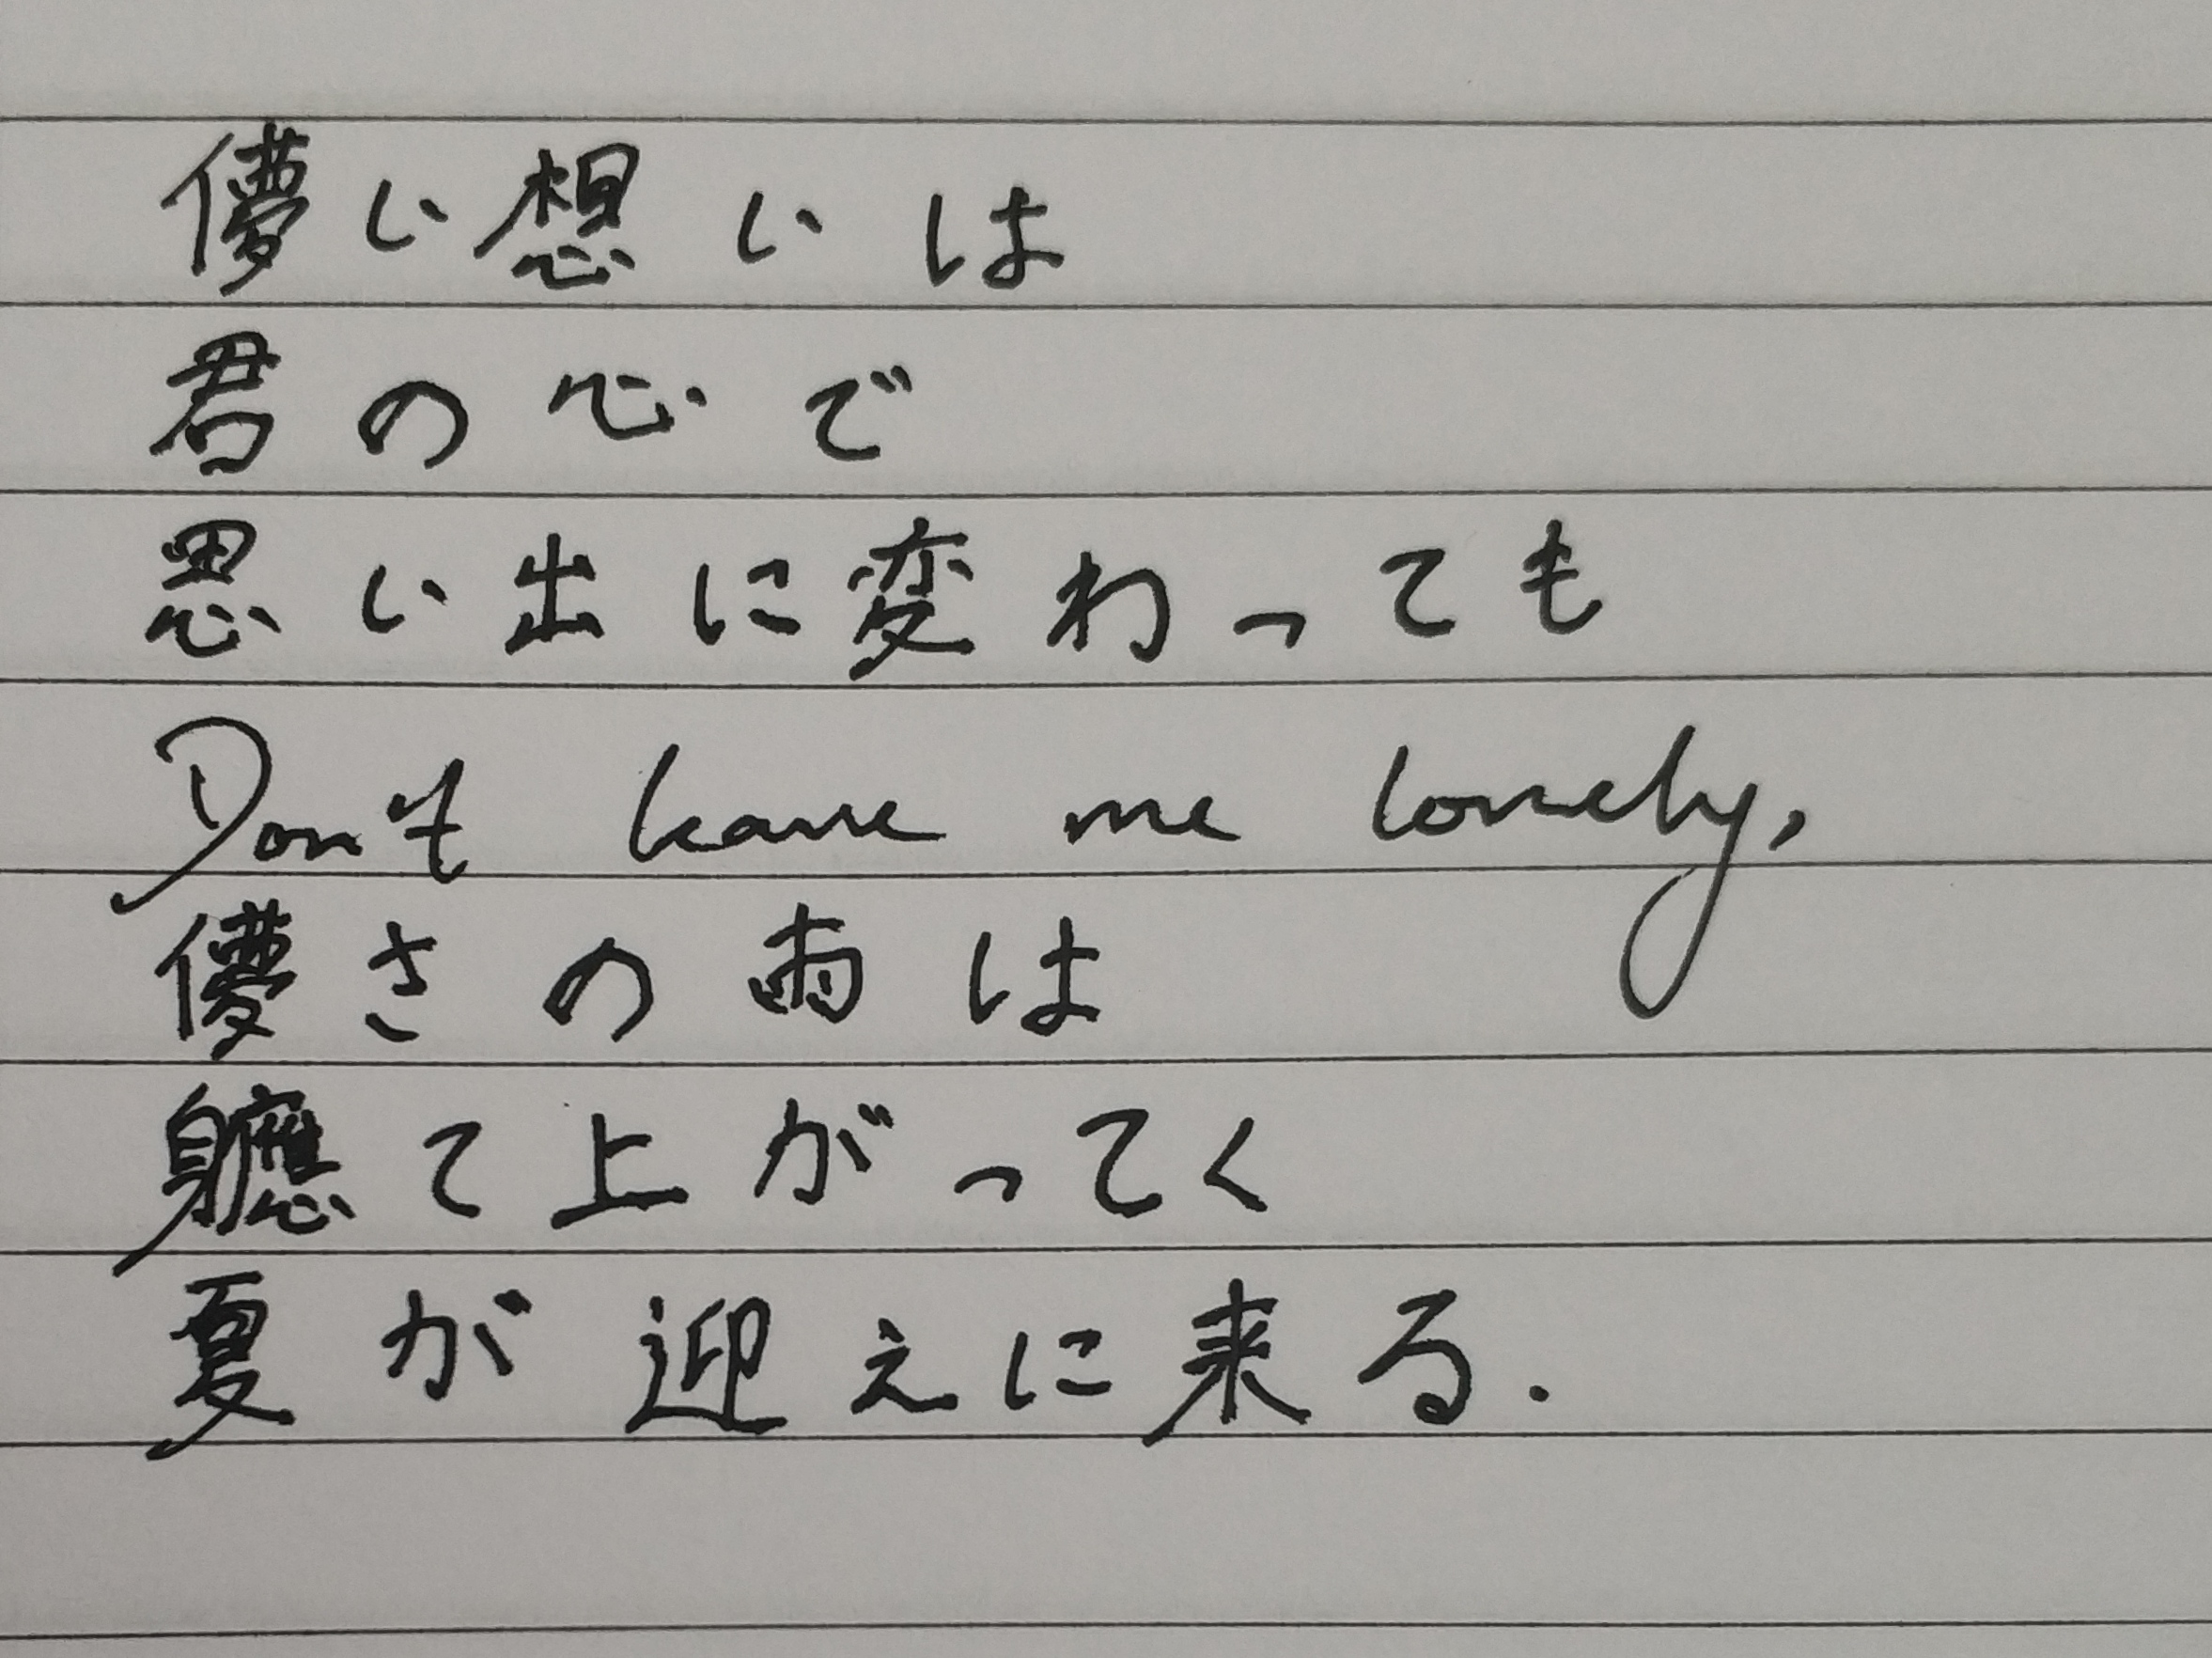 儚い想いは
君の心で
思い出に変わっても
Don't leave me lonely,
儚さの雨は
軈て上がってく
夏が迎えに来る.